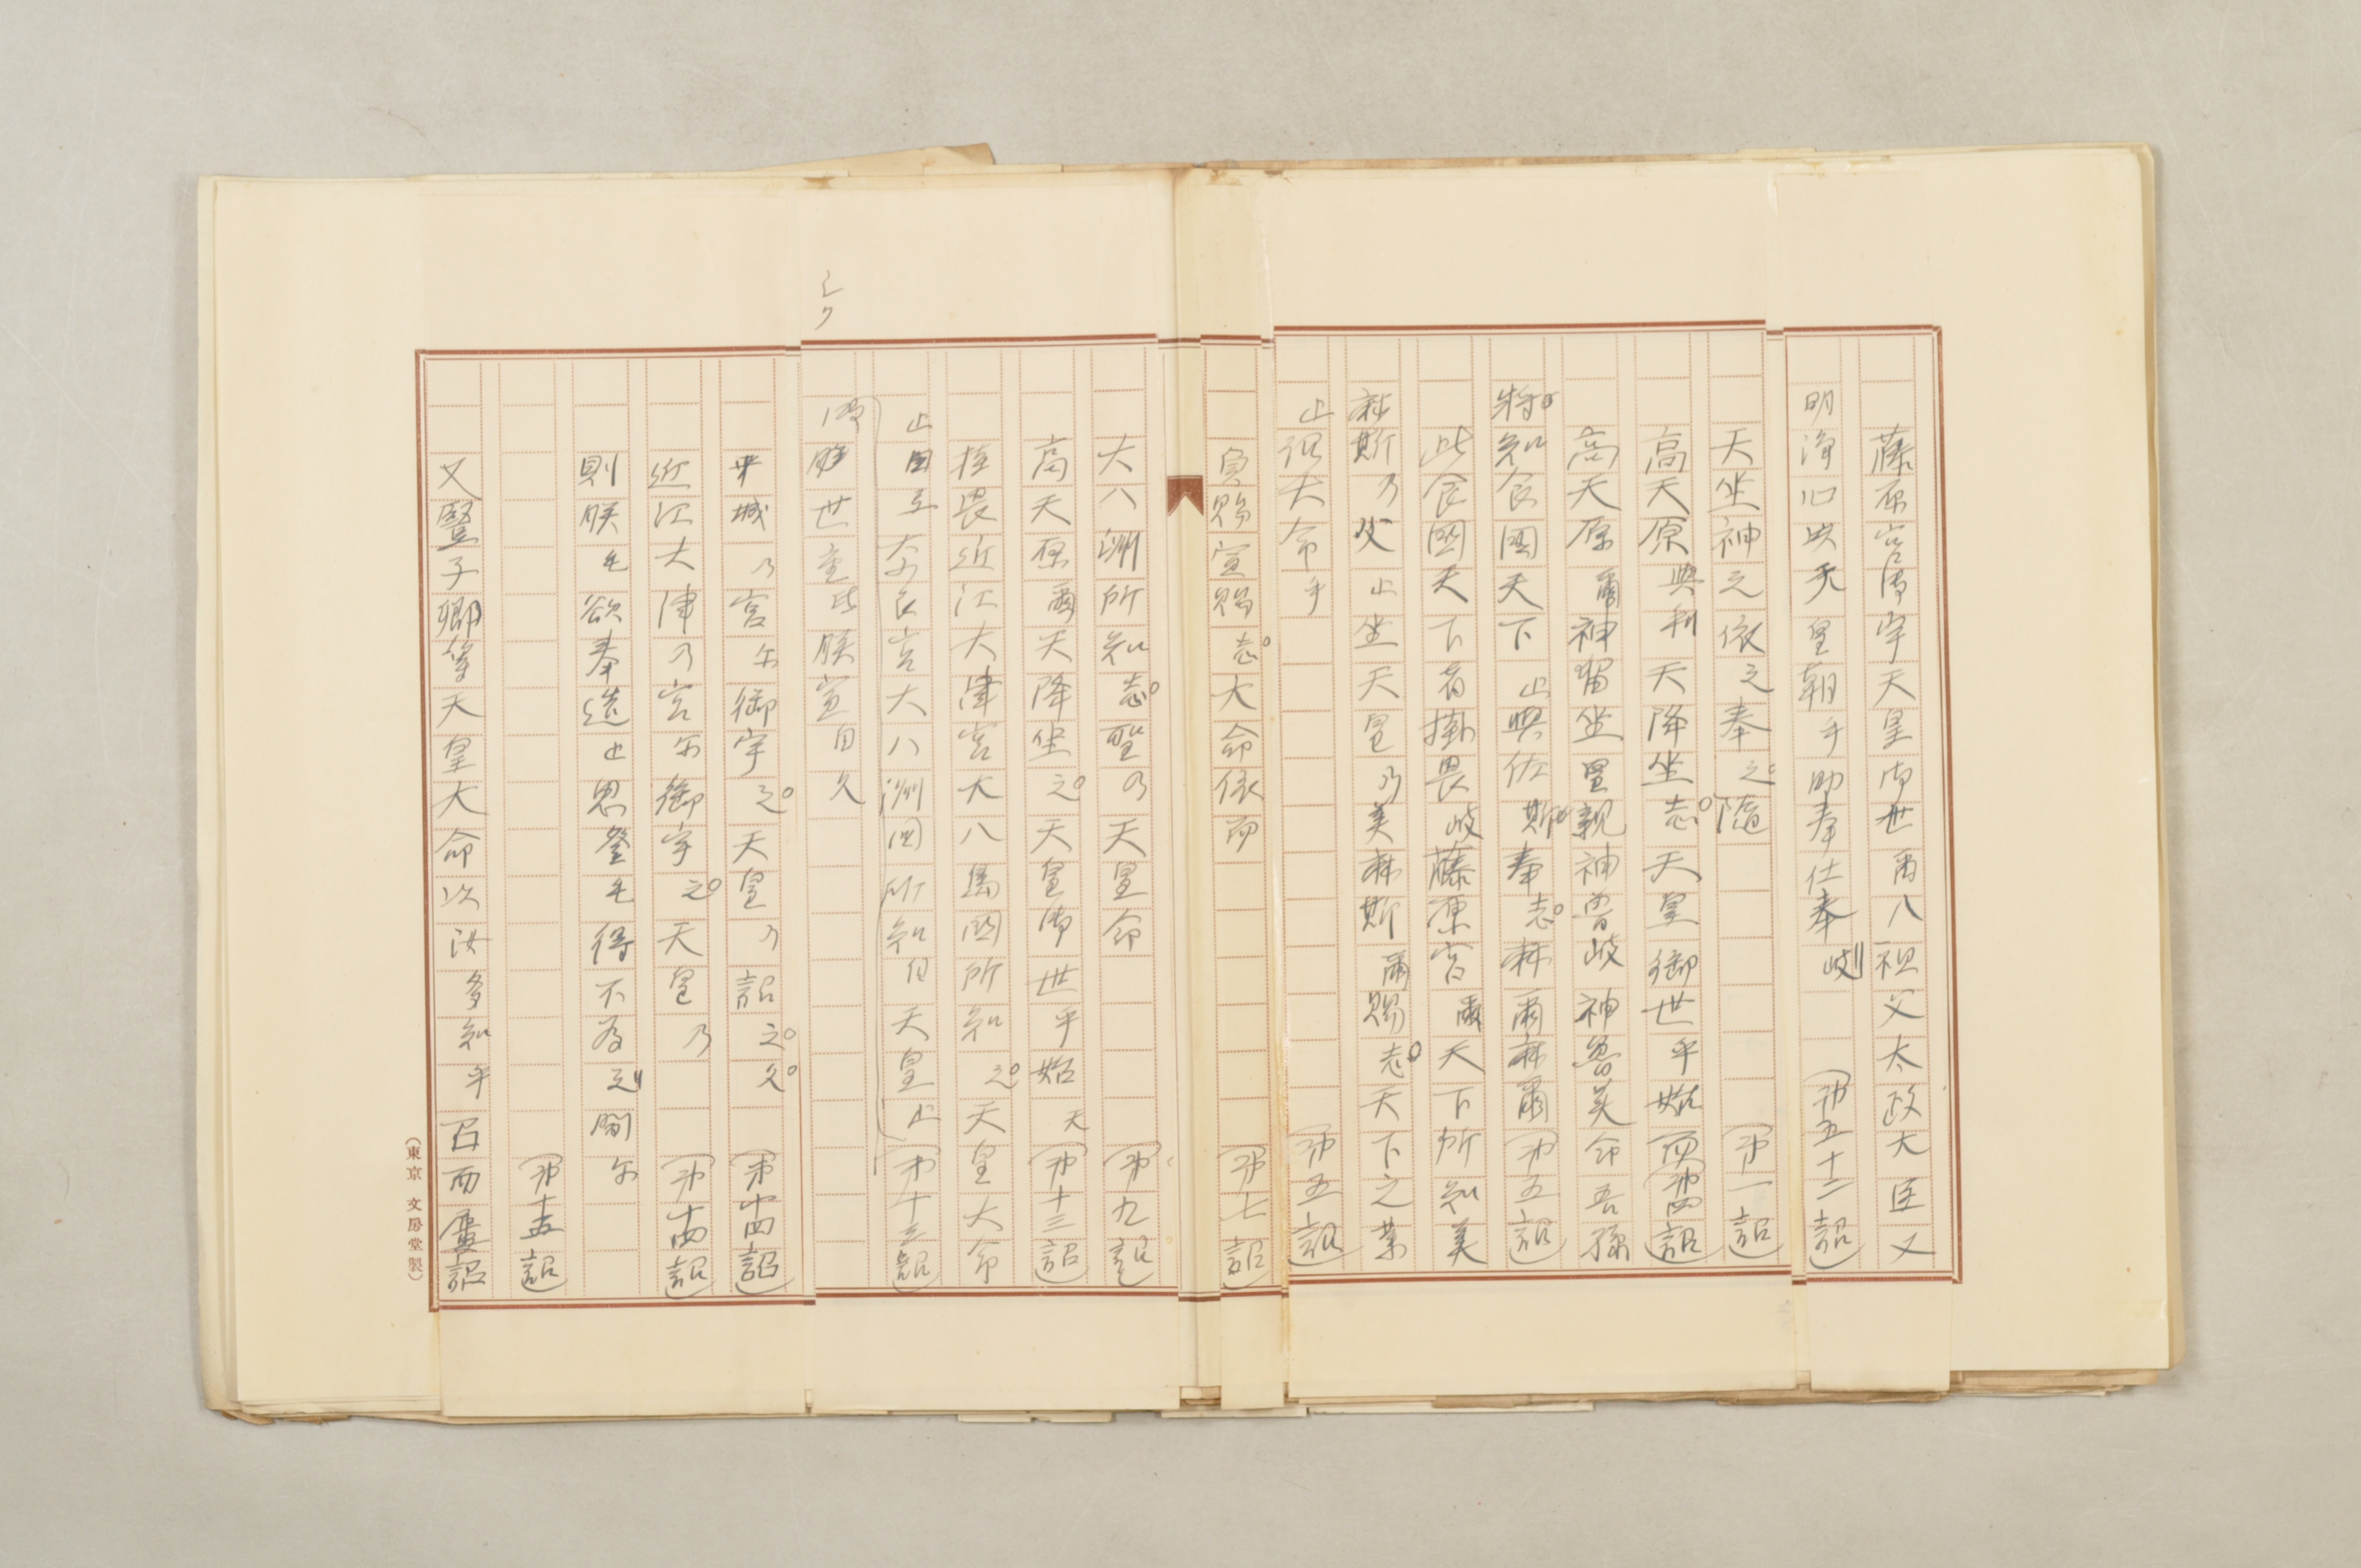 藤原宮御宇天皇御世爾八祖父太政大臣又
明浄心以天皇朝乎助奉仕奉岐(第五十二詔)
天坐神之依之奉之随(第一詔)
高天原與利天降坐志天皇御世乎始而(第四詔)
高天原爾神留坐皇親神魯岐神魯美命吾孫
将知食國天下止與佐斯奉志麻爾麻爾(第五詔)
此食國天下者掛畏岐藤原宮爾天下所知美
麻斯乃父止坐天皇乃美麻斯爾賜志天下之業
止詔大命乎(第五詔)
負賜宣賜志大命依而(第七詔)
大八洲所知志聖乃天皇命(第九詔)
高天原爾天降坐之天皇御世乎始天(第十三詔)
挂畏近江大津宮大八嶋國所知之天皇大命
止国
奈良宮大八洲国所知自天皇止(第十三詔)
シク
御世
朕宣自久
平城乃宮尓御宇之天皇乃詔之久(第十四詔)
近江大津乃宮尓御宇之天皇乃(第十四詔)
則朕毛欲奉造止思登毛得不為之間尓
(第十五詔)
又竪子卿等天皇大命以汝多知乎召而屡詔
(東京 文房堂製)